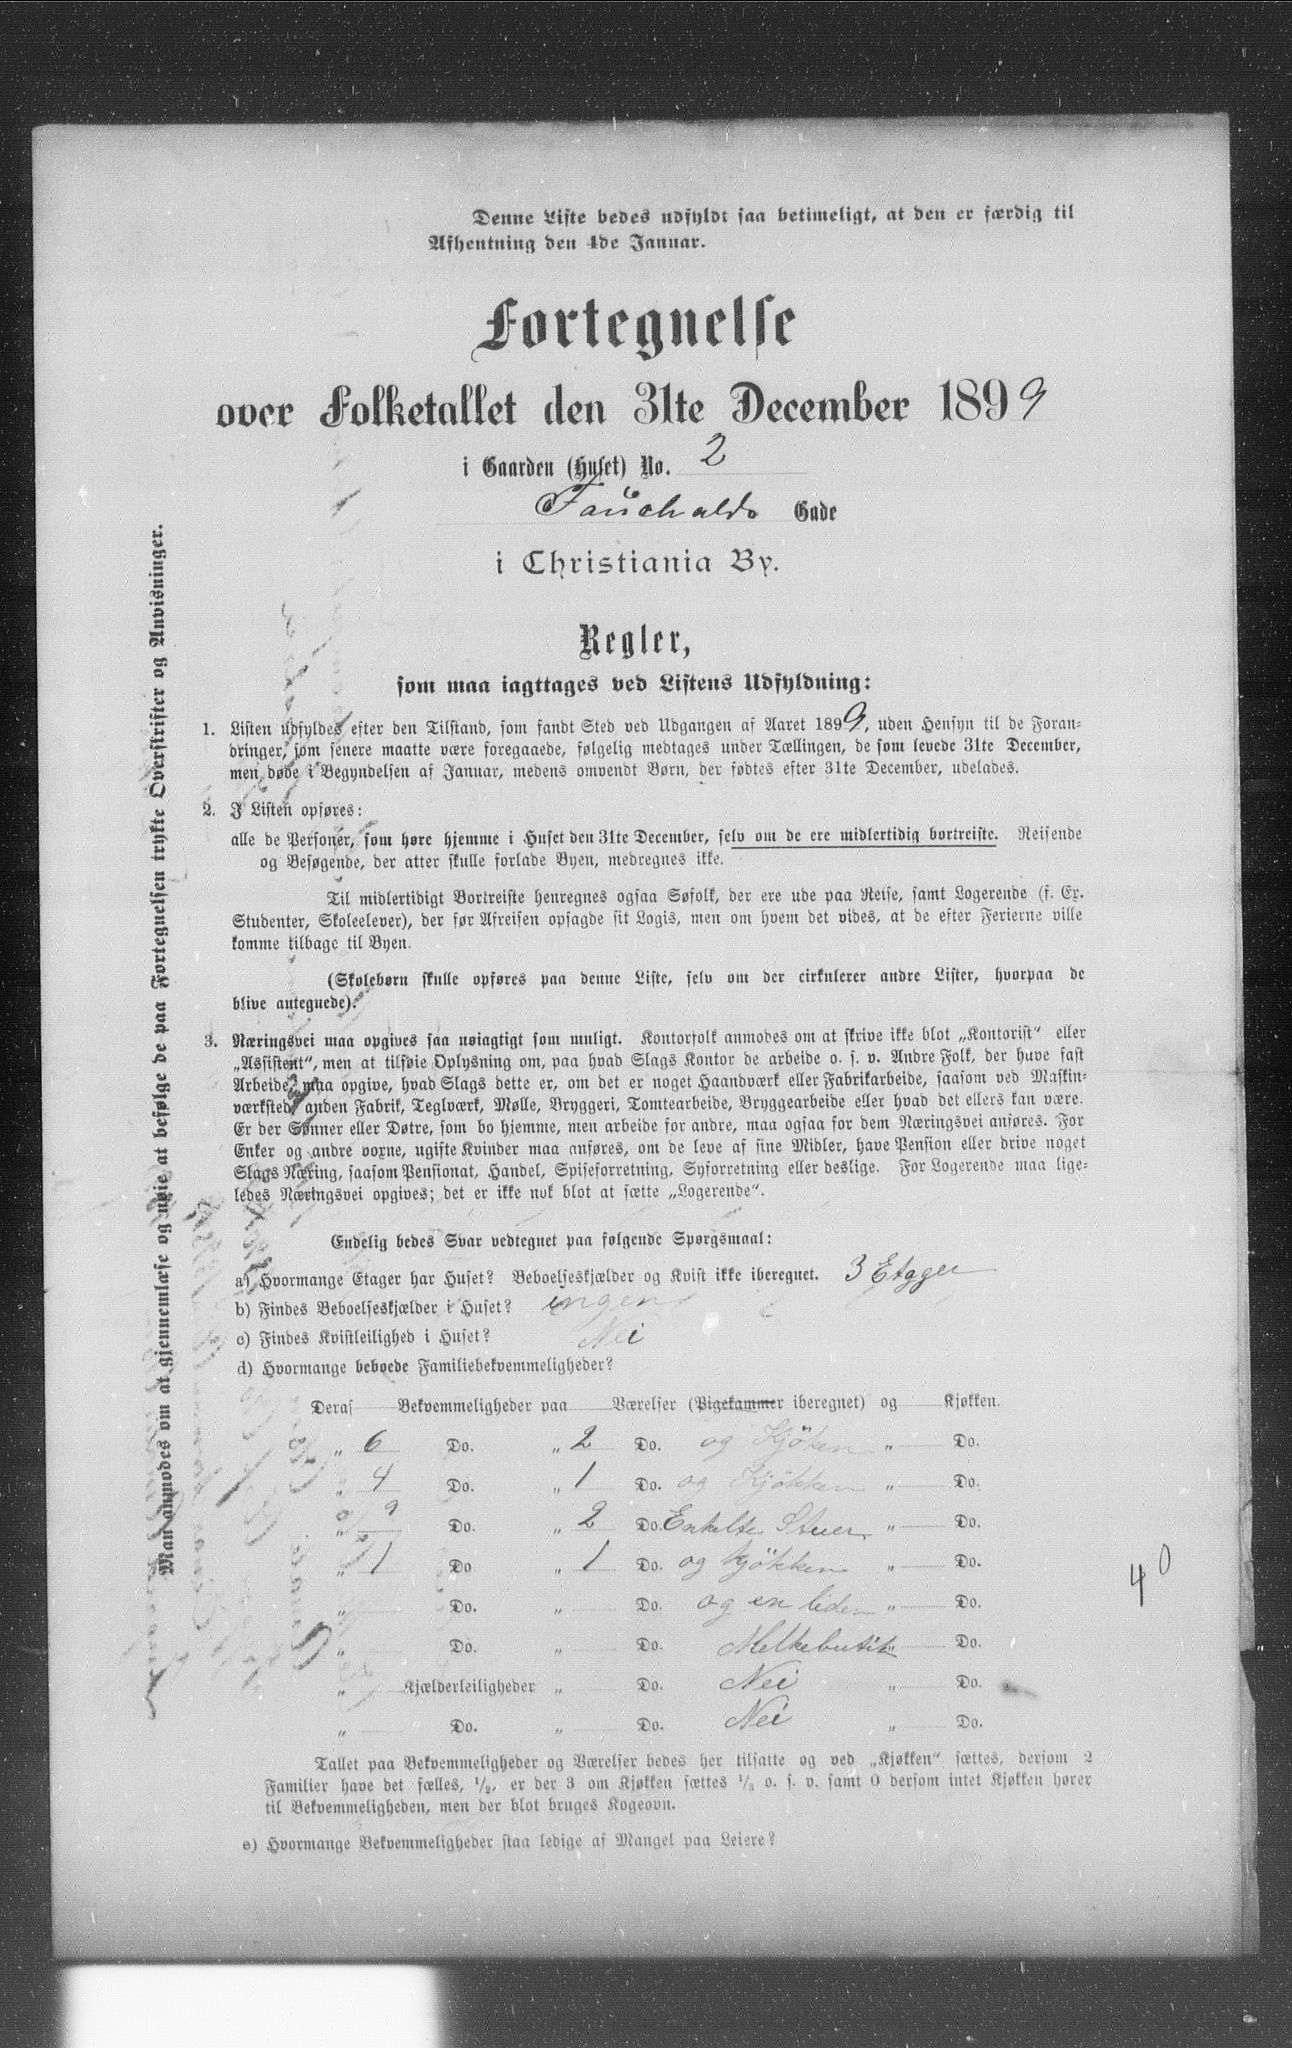 Denne Liste bedes udfyldt saa betimeligt, at den er færdig til
Afhentning den 4de Januar.
Fortegnelse
over Folketallet den 31te December 1899
i Gaarden (Huset) No. 2
Fauchalds Gade
i Christiania By.
Regler,
som maa iagttages ved Listens Udfyldning:
1. Listen udfyldes efter den Tilstand, som fandt Sted ved Udgangen af Aaret 1899, uden Hensyn til de Foran-
dringer, som senere maatte være foregaaede, følgelig medtages under Tællingen, de som levede 31te December,
men døde i Begyndelsen af Januar, medens omvendt Børn, der fødtes efter 31te December, udelades.
2. I Listen opføres:
alle de Personer, som høre hjemme i Huset den 31te December, selv om de ere midlertidig bortreiste. Reisende
og Besøgende, der atter skulle forlade Byen, medregnes ikke.
Til midlertidigt Bortreiste henregnes ogsaa Søfolk, der ere ude paa Reise, samt Logerende (f. Ex.
Studenter, Skoleelever), der før Afreisen opsagde sit Logis, men om hvem det vides, at de efter Ferierne ville
komme tilbage til Byen.
(Skolebørn skulle opføres paa denne Liste, selv om der cirkulerer andre Lister, hvorpaa de
blive antegnede).
3. Næringsvei maa opgives saa nøiagtigt som muligt. Kontorfolk anmodes om at skrive ikke blot „Kontorist“ eller
„Assistent“, men at tilføie Oplysning om, paa hvad Slags Kontor de arbeide o. s. v. Andre Folk, der have fast
Arbeide, maa opgive, hvad Slags dette er, om det er noget Haandværk eller Fabrikarbeide, saasom ved Maskin-
værksted, anden Fabrik, Teglværk, Mølle, Bryggeri, Tomtearbeide, Bryggearbeide eller hvad det ellers kan være.
Er der Sønner eller Døtre, som bo hjemme, men arbeide for andre, maa ogsaa for dem Næringsvei anføres. For
Enker og andre voxne, ugifte Kvinder maa anføres, om de leve af sine Midler, have Pension eller drive noget
Slags Næring, saasom Pensionat, Handel, Spiseforretning, Syforretning eller deslige. For Logerende maa lige-
ledes Næringsvei opgives; det er ikke nok blot at sætte „Logerende“.
Endelig bedes Svar vedtegnet paa følgende Spørgsmaal:
a) Hvormange Etager har Huset? Beboelseskjælder og Kvist ikke iberegnet. 3 Etager
b) Findes Beboelseskjælder i Huset? ingen
c) Findes Kvistleilighed i Huset? Nei
d) Hvormange beboede Familiebekvemmeligheder?
Deraf Bekvemmeligheder paa Værelser (Pigekammer iberegnet) og Kjøkken.
„ 6 Do. „ 2 Do. og Kjökken „ Do.
„ 4 Do. „ 1 Do. og Kjökken „ Do.
„ 2 Do. „ 2 Do. Enkelte Stuer „ Do.
„ 1 Do „ 1 Do. og kjökken „ Do.
„ Do. „ Do. og en liden „ Do.
„ Do. „ Do. Melkebutik „ Do.
„ Kjælderleiligheder „ Do. Nei „ Do.
„ Do. „ Do. Nei „ Do.
40
Tallet paa Bekvemmeligheder og Værelser bedes her tilsatte og ved „Kjøkken“ sættes, dersom 2
Familier have det fælles, 1/2, er der 3 om Kjøkken sættes 1/3 o. s. v. samt 0 dersom intet Kjøkken hører
til Bekvemmeligheden, men der blot bruges Kogeovn.
e) Hvormange Bekvemmeligheder staa ledige af Mangel paa Leiere?
Man anmodes om at gjennemlæse og nøie at befølge de paa Fortegnelsen trykte Overskrifter og Anvisninger.